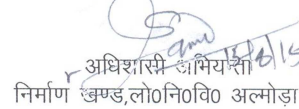 अधिशासी अभियन्ता
निर्माण खण्ड,लो0नि0वि0 अल्मोड़ा